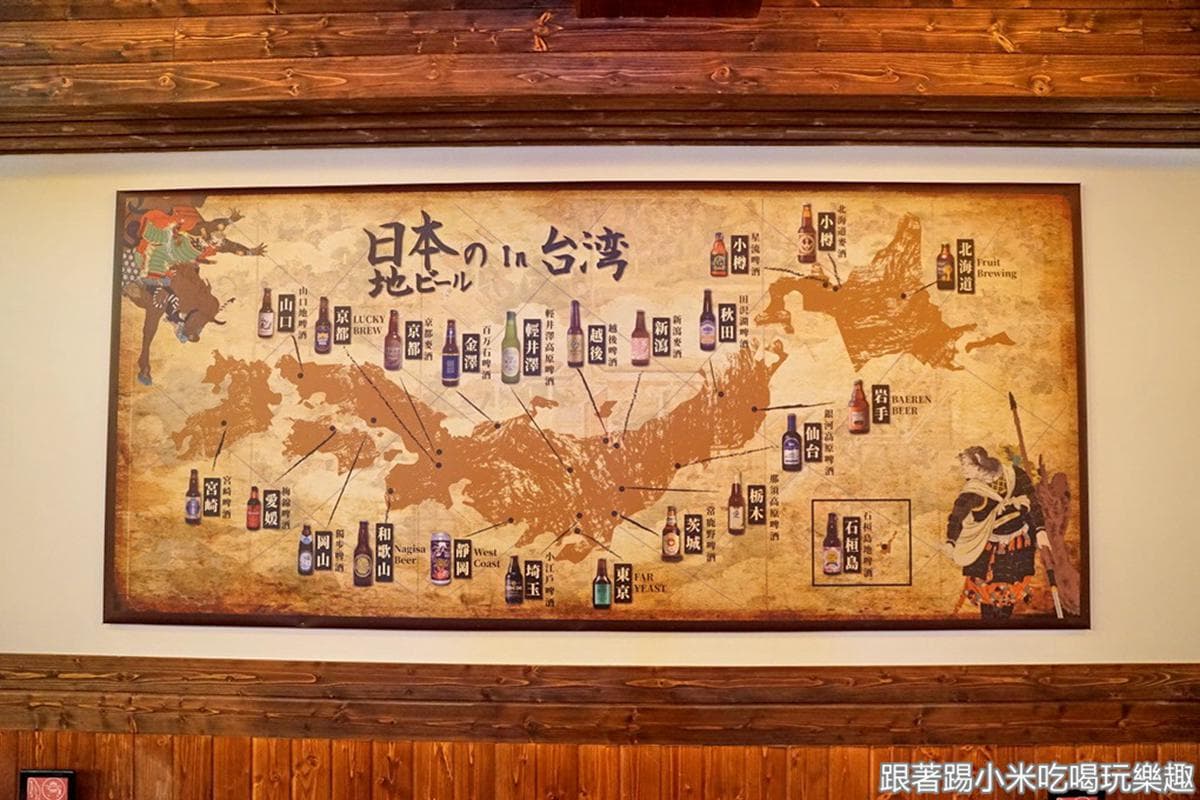 日本の In 台湾
地ビール
小樽
星流啤酒
小樽
北海道麥酒
北海道
Fruit
Brewing
山口
山口地啤酒
京都
LUCKY
BREW
京都
京都麥酒
金澤
百万石啤酒
輕井澤
輕井澤高原啤酒
越後
越後啤酒
新瀉
新瀉麥酒
秋田
田沢湖啤酒
岩手
BAEREN
BEER
仙台
銀河高原啤酒
栃木
那須高原啤酒
茨城
常鹿野啤酒
宮崎
宮崎啤酒
愛媛
梅錦啤酒
岡山
獨步啤酒
和歌山
Nagisa
Beer
靜岡
West
Coast
埼玉
小江戶啤酒
東京
FAR
YEAST
石垣島
石垣島地啤酒
跟著踢小米吃喝玩樂趣